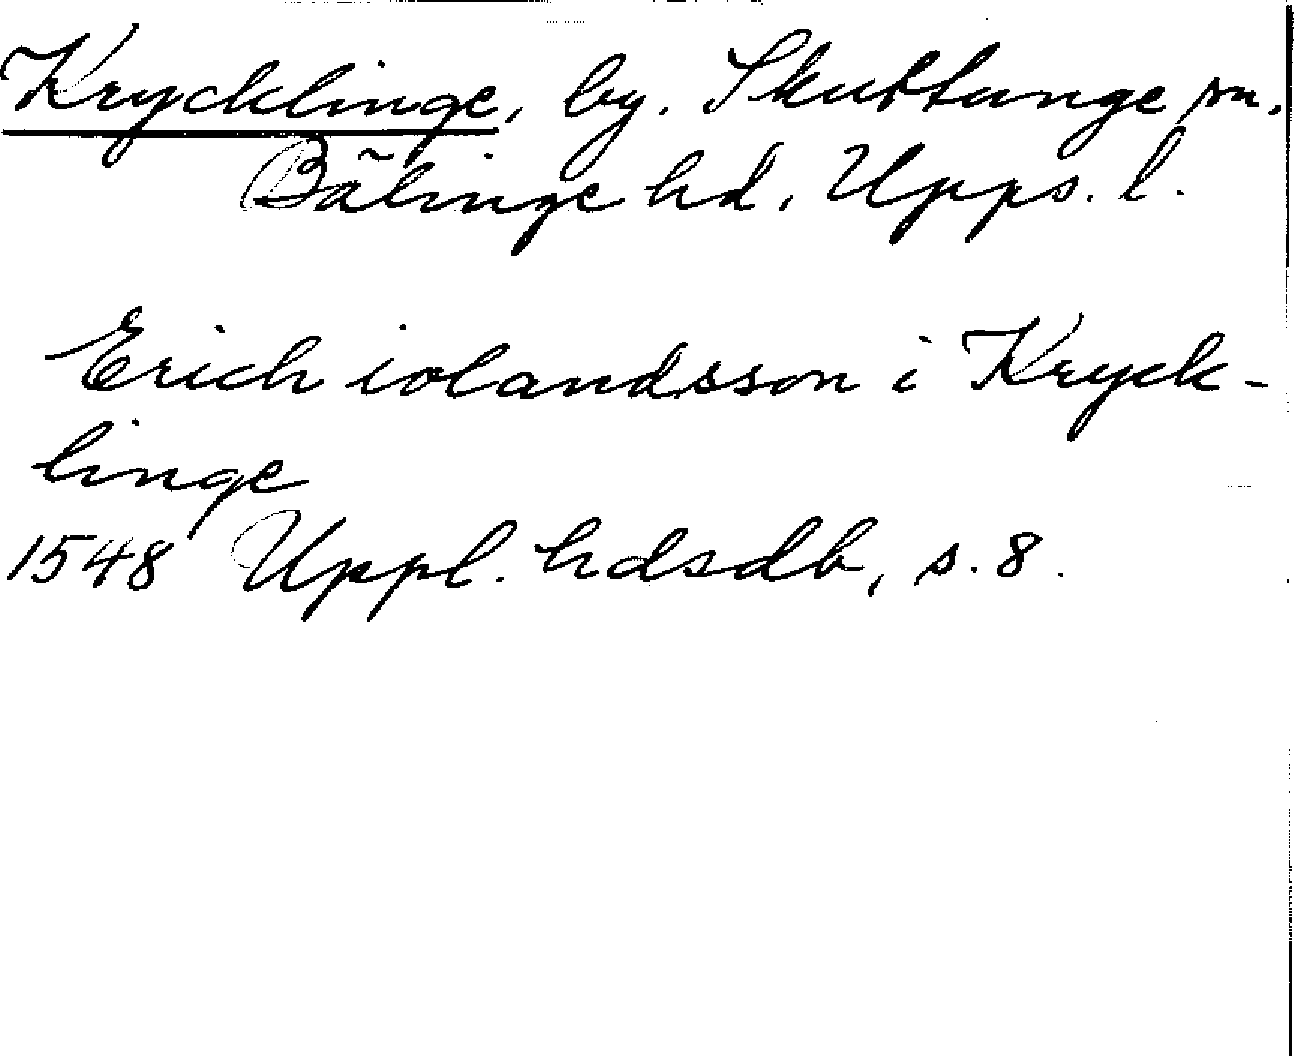 Krycklinge, by. Skuttunge sn.
Bälinge hd, Upps. l.
Erich iolandsson i Kryck-
linge
1548 Uppl. hdsdb, s. 8.